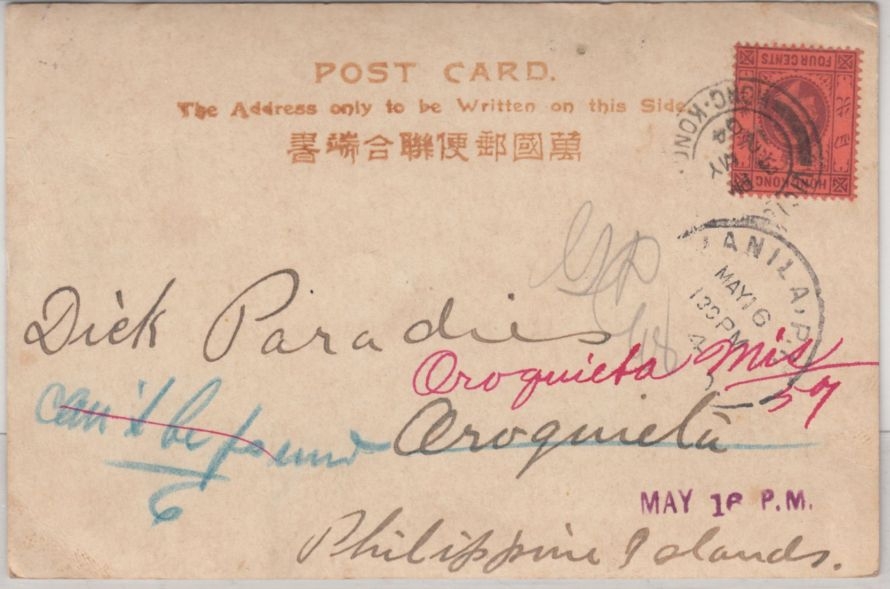 POST CARD.
The Address only to be Written on this Side.
萬國郵便聯合端書
FOUR CENTS
HONG KONG
HONG-KONG
MANILA, P.I.
MAY 16
130 PM
Dick Paradies
Oroquieta Mis
57
can't be found
Oroquieta
6
MAY 16 P.M.
Philippine Islands.